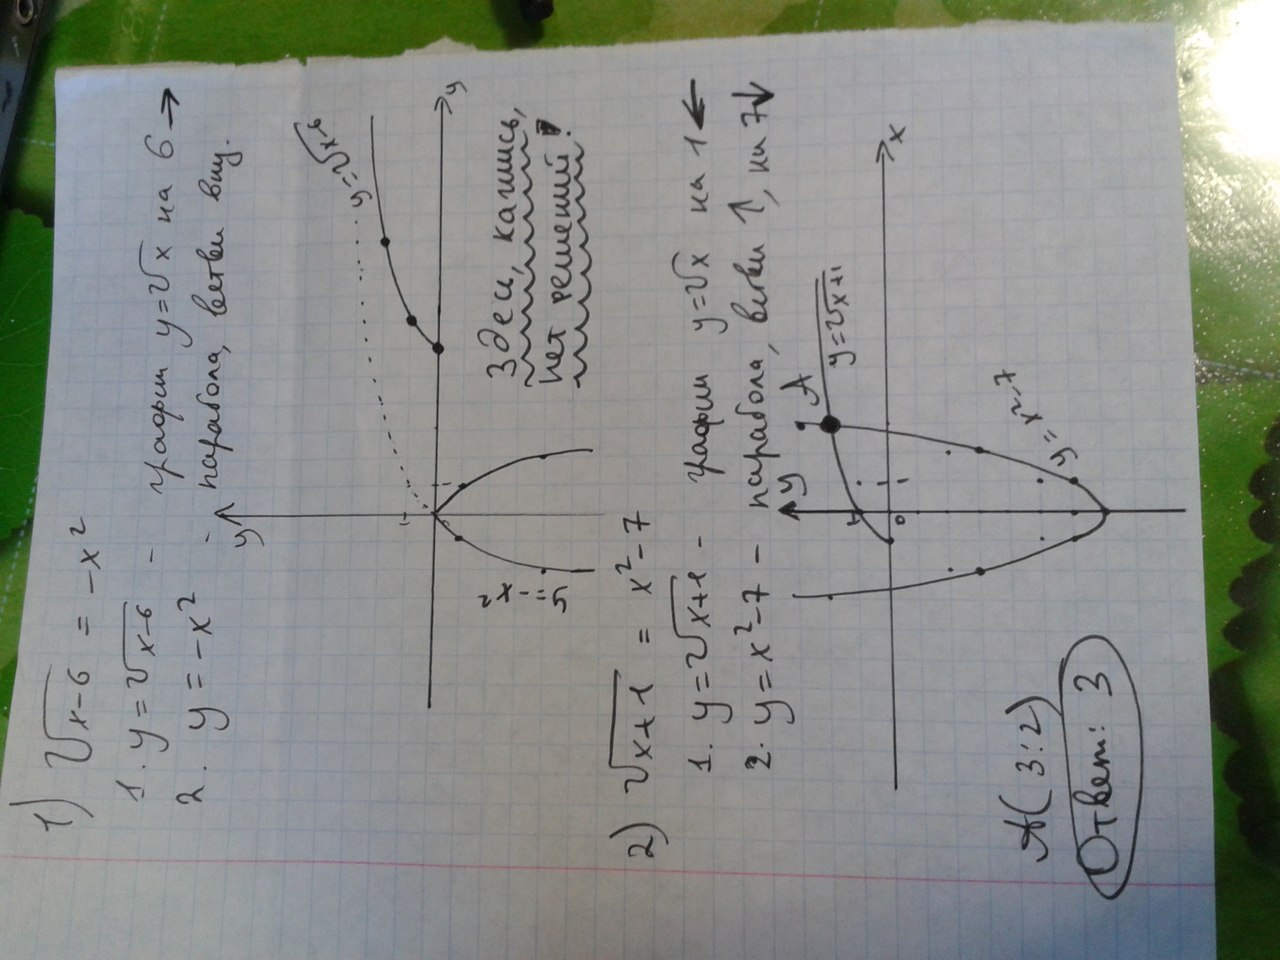 1) √x-6 = -x²
1. y=√x-6 - график y=√x на 6 →
2. y=-x² - парабола, ветви вниз.
y
y=√x-6
y
1
y=-x²
Здесь, кажись,
нет решений!
2) √x+1 = x²-7
1. y=√x+1 - график y=√x на 1 ←
2. y=x²-7 - парабола, ветви ↑, на 7↓
y
A
y=√x+1
x
1
0
1
y=x²-7
A(3;2)
Ответ: 3